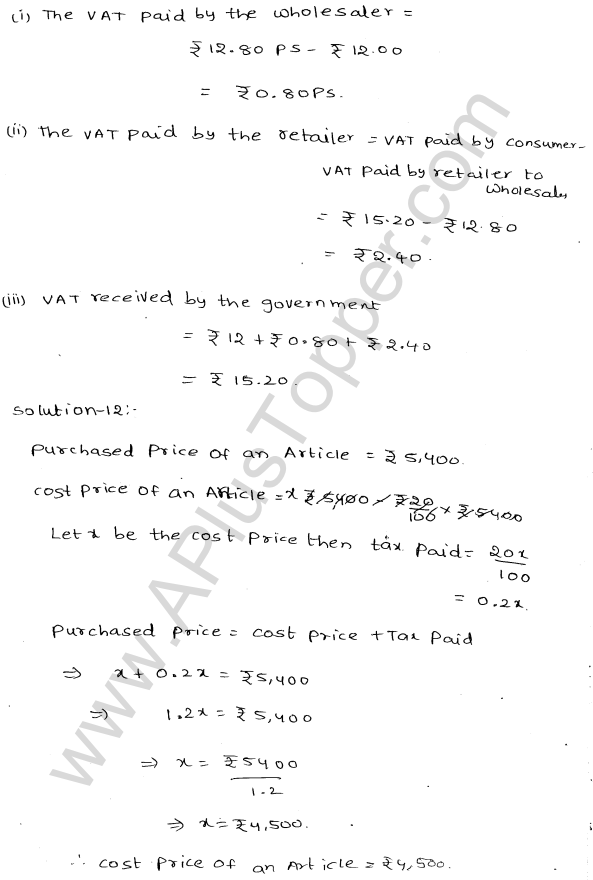 (i) The VAT paid by the wholesaler =
₹12.80 PS - ₹12.00
= ₹0.80PS.
(ii) The VAT paid by the retailer = VAT paid by consumer-
VAT paid by retailer to
wholesaler
= ₹15.20 - ₹12.80
= ₹2.40.
(iii) VAT received by the government
= ₹12 + ₹0.80 + ₹2.40
= ₹15.20.
Solution-12:-
Purchased Price of an Article = ₹5,400.
cost price of an Article = x ₹5400 - ₹20/100 × ₹5400
Let x be the cost price then tax paid = 20x/100
= 0.2x.
Purchased price = cost price + Tax paid
⇒ x + 0.2x = ₹5,400
⇒ 1.2x = ₹5,400
⇒ x = ₹5400/1.2
⇒ x = ₹4,500.
∴ cost price of an Article = ₹4,500.
www.APlusTopper.com